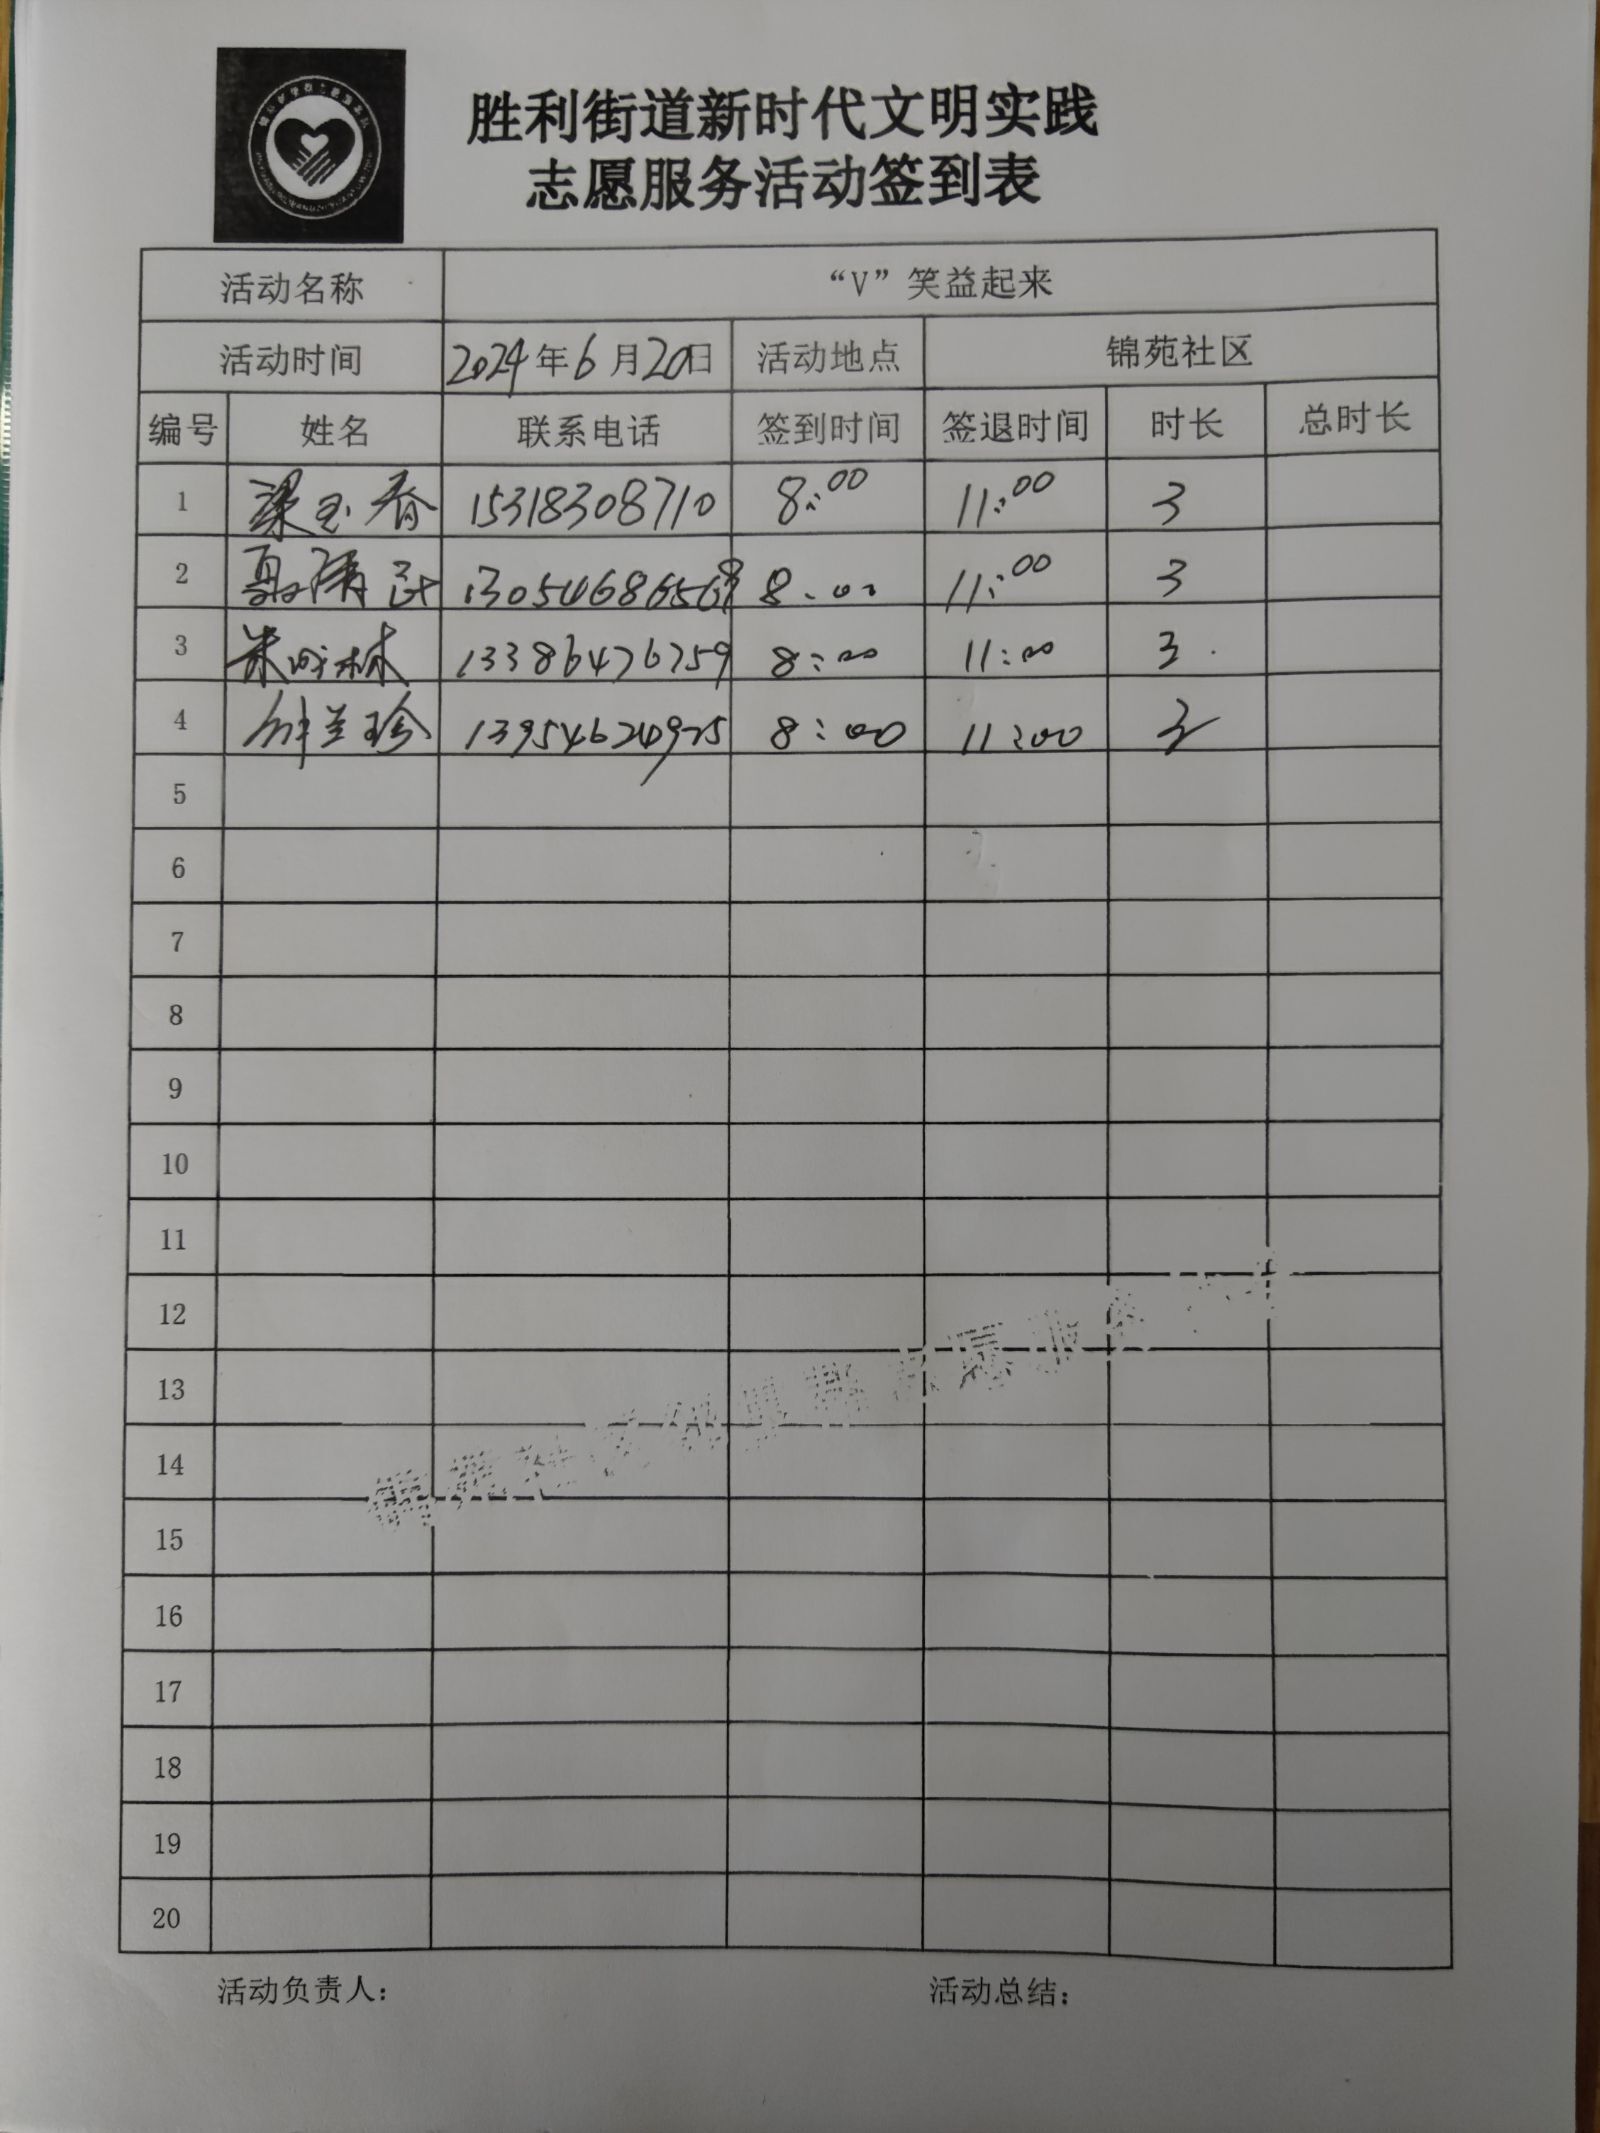 胜利街道新时代文明实践
志愿服务活动签到表
活动名称 “V”笑益起来
活动时间 2024年6月20日 活动地点 锦苑社区
编号 姓名 联系电话 签到时间 签退时间 时长 总时长
1 梁玉春 15318308710 8:00 11:00 3
2 8:00 11:00 3
3 13386476759 8:00 11:00 3
4 兰珍 13954624975 8:00 11:00 3
5
6
7
8
9
10
11
12
13
14
15
16
17
18
19
20
活动负责人: 活动总结: